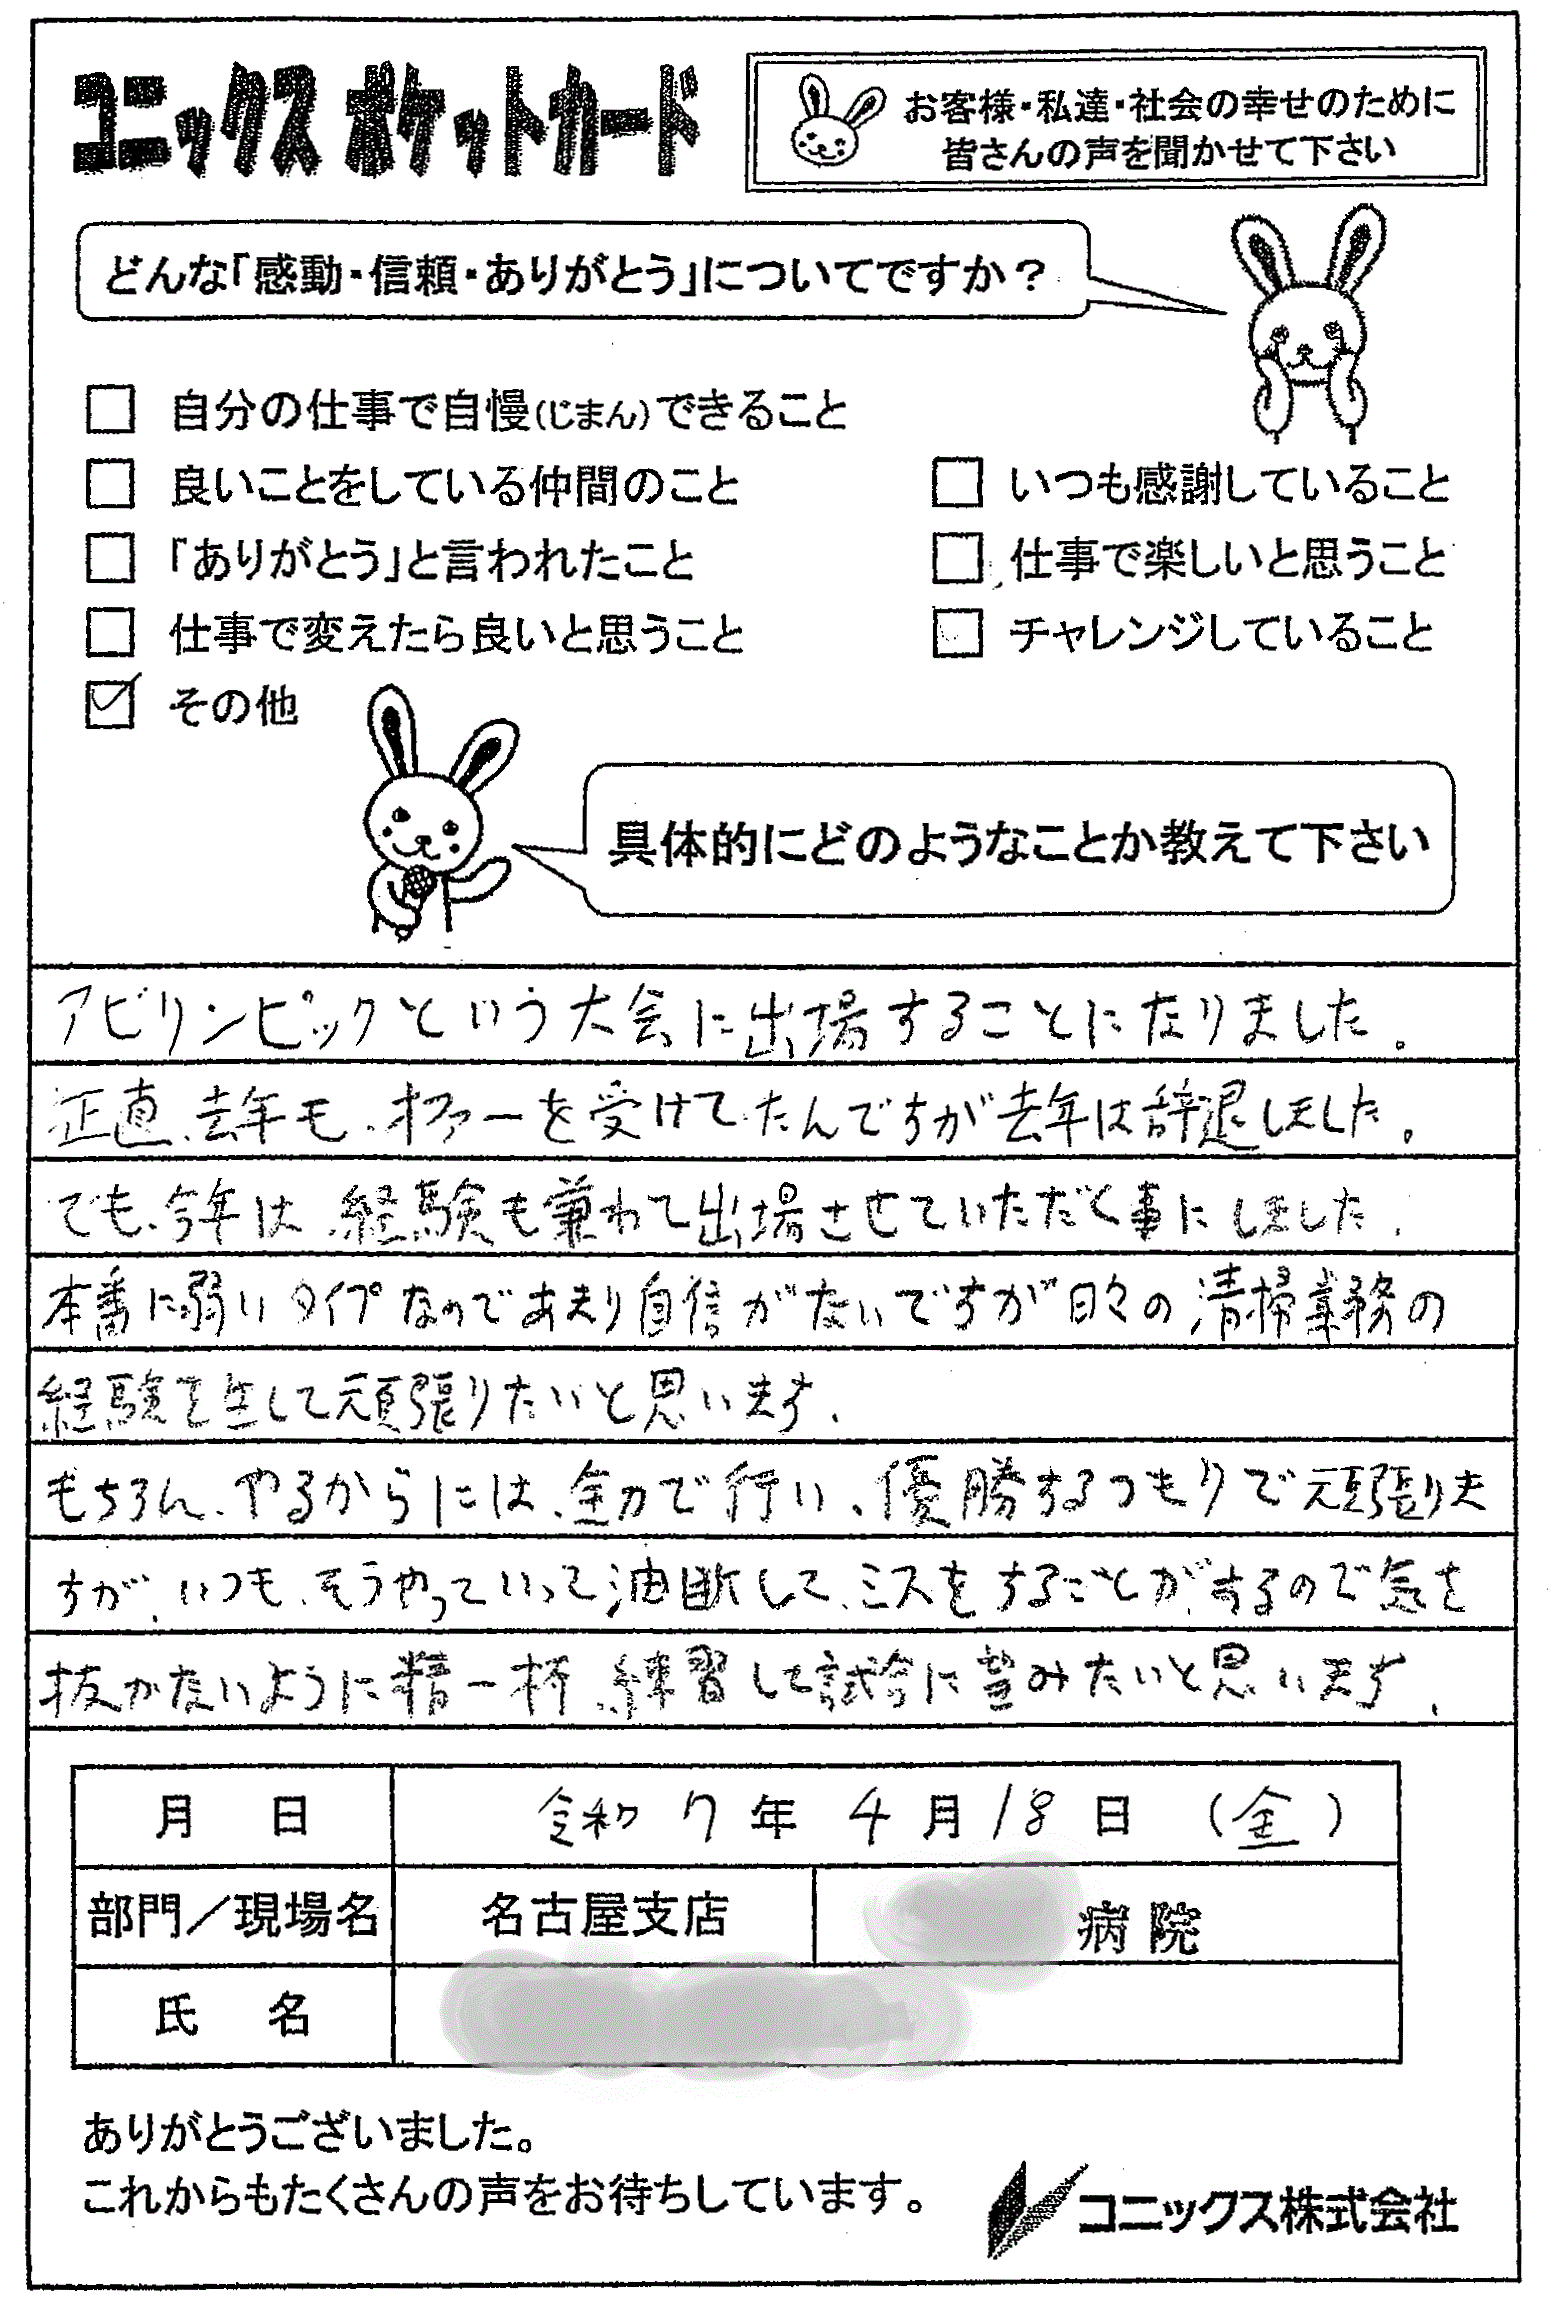 コニックス ポケットカード
お客様・私達・社会の幸せのために
皆さんの声を聞かせて下さい
どんな「感動・信頼・ありがとう」についてですか？
自分の仕事で自慢(じまん)できること
良いことをしている仲間のこと
いつも感謝していること
「ありがとう」と言われたこと
仕事で楽しいと思うこと
仕事で変えたら良いと思うこと
チャレンジしていること
その他
具体的にどのようなことか教えて下さい
アビリンピックという大会に出場することになりました。
正直、去年も、オファーを受けてたんですが去年は辞退しました。
でも、今年は、経験も兼ねて出場させていただく事にしました、
本番に弱いタイプなのであまり自信がないですが日々の清掃業務の
経験を生して頑張りたいと思います、
もちろん、やるからには、全力で行い、優勝するつもりで頑張りま
すが、いつも、そうやっていって油断して、ミスをすることが、あるので気を
抜かないように精一杯、練習して試合に望みたいと思います、
月 日 令和 7 年 4 月 18 日 (金)
部門／現場名 名古屋支店 病院
氏 名
ありがとうございました。
これからもたくさんの声をお待ちしています。
コニックス株式会社